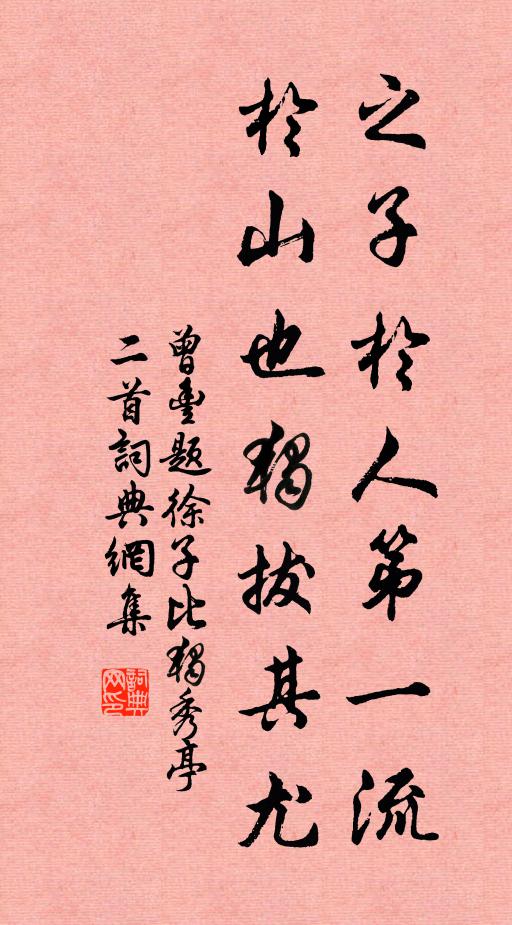 之子於人第一流
於山也獨拔其尤
曾豐題徐子比獨秀亭
二首詞典網集
詞典網印